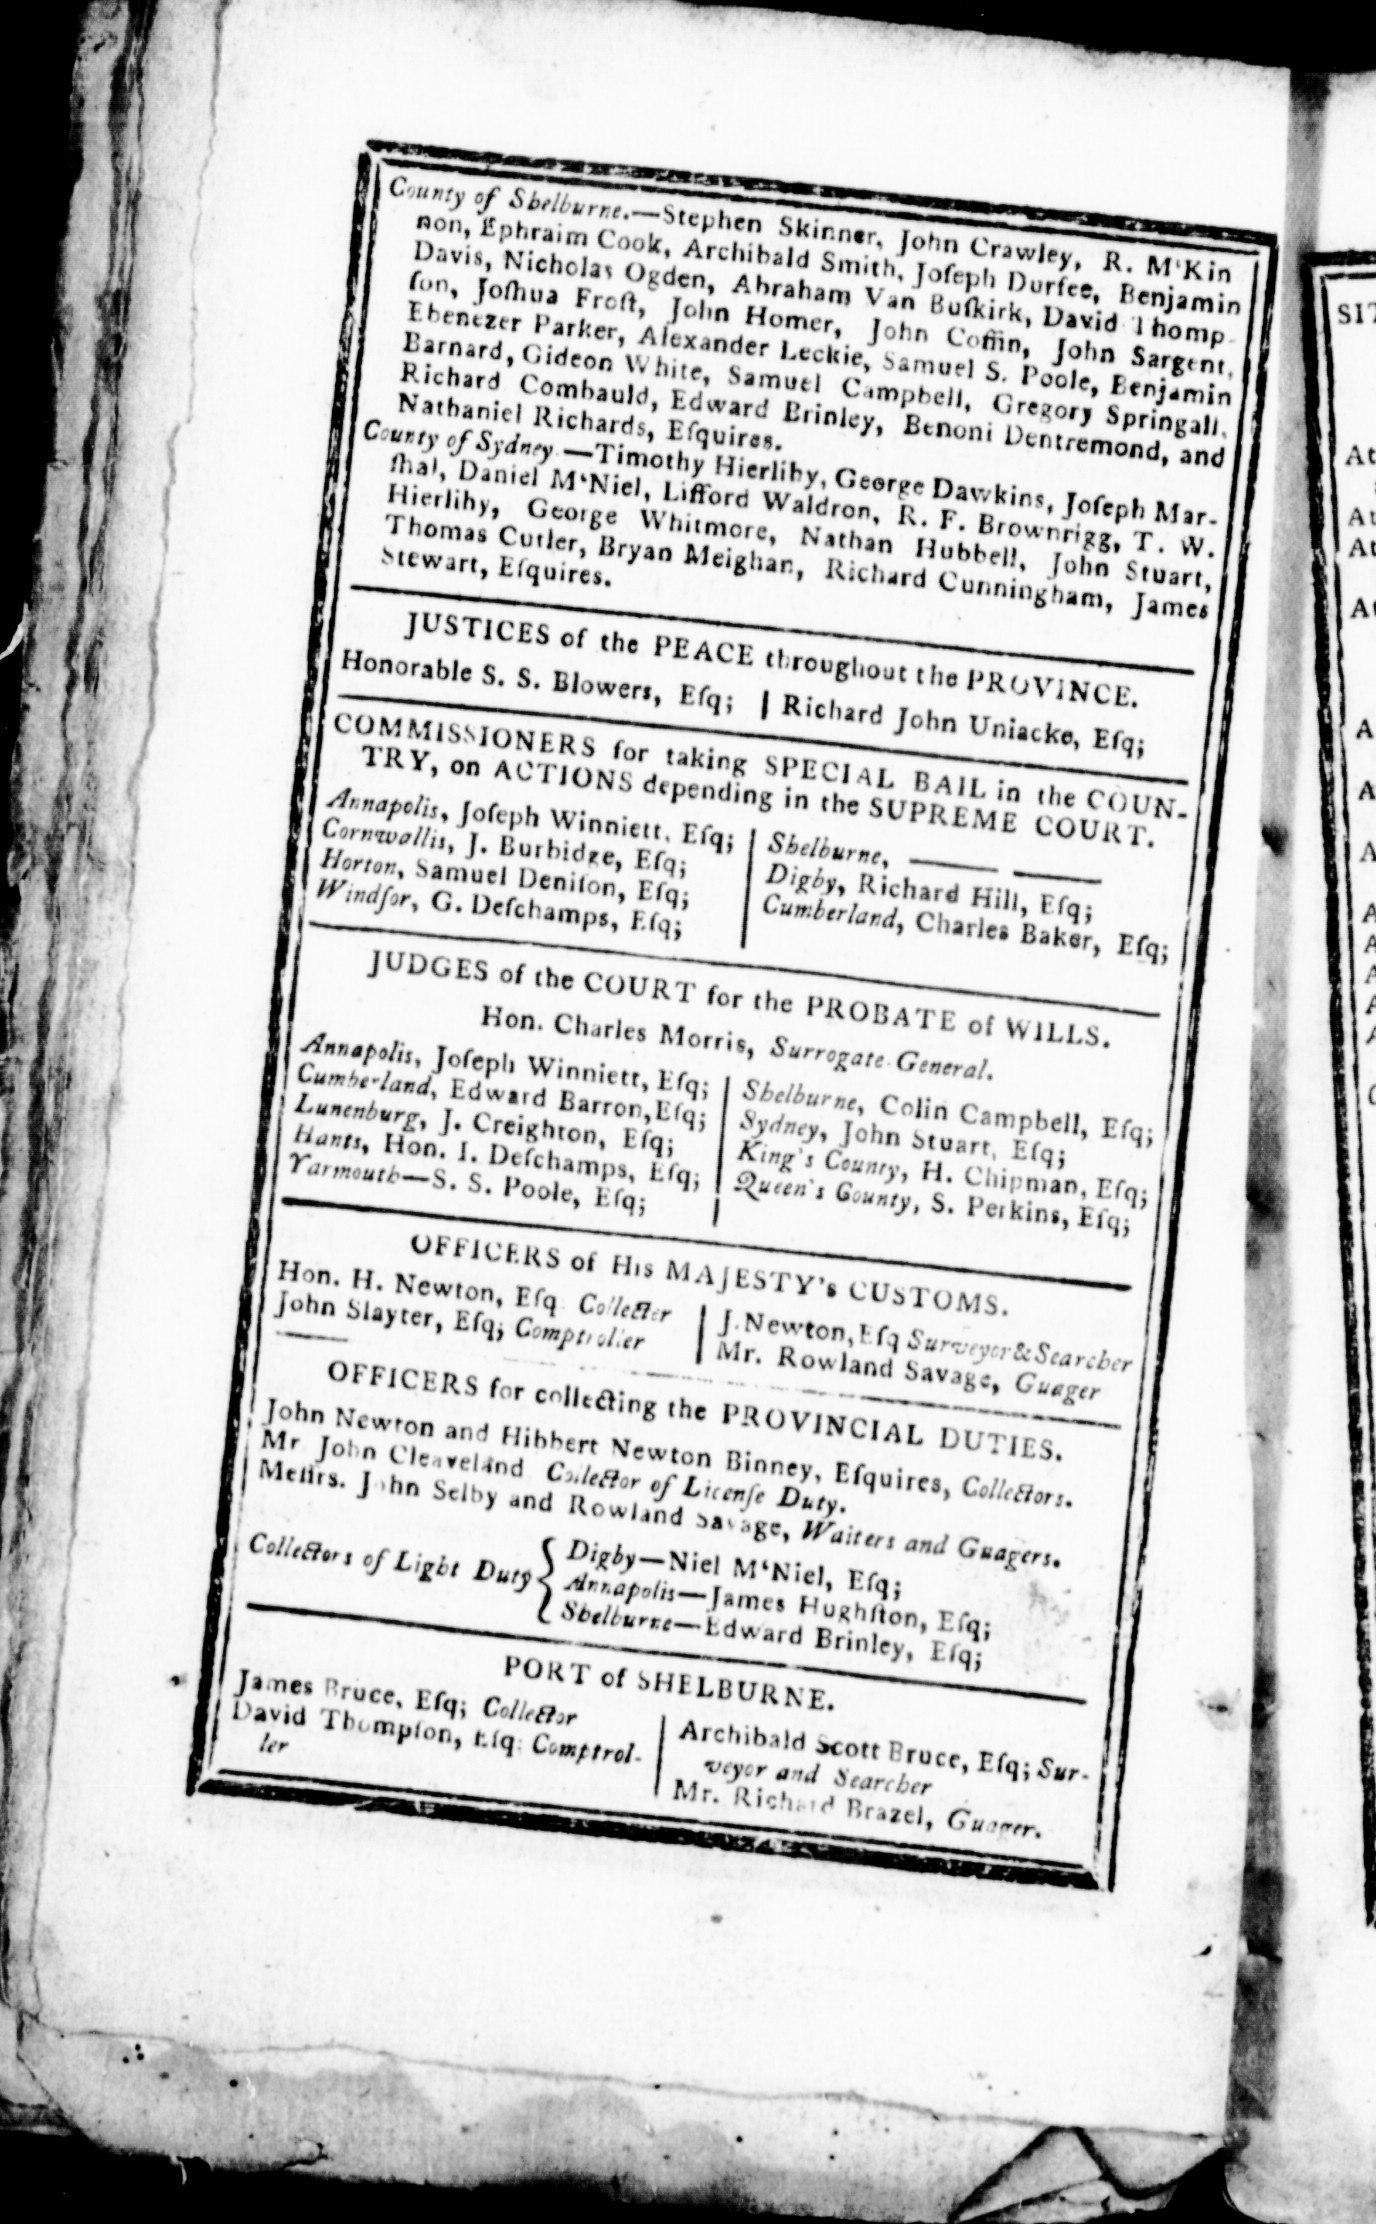 County of Shelburne.—Stephen Skinner, John Crawley, R. M‘Kin
non, Ephraim Cook, Archibald Smith, Joſeph Durfee, Benjamin
Davis, Nicholas Ogden, Abraham Van Buſkirk, David Thomp-
ſon, Joſhua Froſt, John Homer, John Coffin, John Sargent,
Ebenezer Parker, Alexander Leckie, Samuel S. Poole, Benjamin
Barnard, Gideon White, Samuel Campbell, Gregory Springall,
Richard Combauld, Edward Brinley, Benoni Dentremond, and
Nathaniel Richards, Eſquires.
County of Sydney—Timothy Hierlihy, George Dawkins, Joſeph Mar-
ſhal, Daniel M‘Niel, Lifford Waldron, R. F. Brownrigg, T. W.
Hierlihy, George Whitmore, Nathan Hubbell, John Stuart,
Thomas Cutler, Bryan Meighan, Richard Cunningham, James
Stewart, Eſquires.
JUSTICES of the PEACE throughout the PROVINCE.
Honorable S. S. Blowers, Eſq; | Richard John Uniacke, Eſq;
COMMISSIONERS for taking SPECIAL BAIL in the COUN-
TRY, on ACTIONS depending in the SUPREME COURT.
Annapolis, Joſeph Winniett, Eſq;
Cornwallis, J. Burbidge, Eſq;
Horton, Samuel Deniſon, Eſq;
Windſor, G. Deſchamps, Eſq;
Shelburne, —— ——
Digby, Richard Hill, Eſq;
Cumberland, Charles Baker, Eſq;
JUDGES of the COURT for the PROBATE of WILLS.
Hon. Charles Morris, Surrogate-General.
Annapolis, Joſeph Winniett, Eſq;
Cumberland, Edward Barron, Eſq;
Lunenburg, J. Creighton, Eſq;
Hants, Hon. I. Deſchamps, Eſq;
Yarmouth—S. S. Poole, Eſq;
Shelburne, Colin Campbell, Eſq;
Sydney, John Stuart, Eſq;
King's County, H. Chipman, Eſq;
Queen's County, S. Perkins, Eſq;
OFFICERS of His MAJESTY's CUSTOMS.
Hon. H. Newton, Eſq Collecter
John Slayter, Eſq; Comptroller
J. Newton, Eſq Surveyor & Searcher
Mr. Rowland Savage, Guager
OFFICERS for collecting the PROVINCIAL DUTIES.
John Newton and Hibbert Newton Binney, Eſquires, Collectors.
Mr John Cleaveland Collector of Licenſe Duty.
Meſſrs. John Selby and Rowland Savage, Waiters and Guagers.
Collectors of Light Duty { Digby—Niel M‘Niel, Eſq;
Annapolis—James Hughſton, Eſq;
Shelburne—Edward Brinley, Eſq;
PORT of SHELBURNE.
James Bruce, Eſq; Collector
David Thompſon, Eſq; Comptrol-
ler
Archibald Scott Bruce, Eſq; Sur-
veyor and Searcher
Mr. Richard Brazel, Guager.